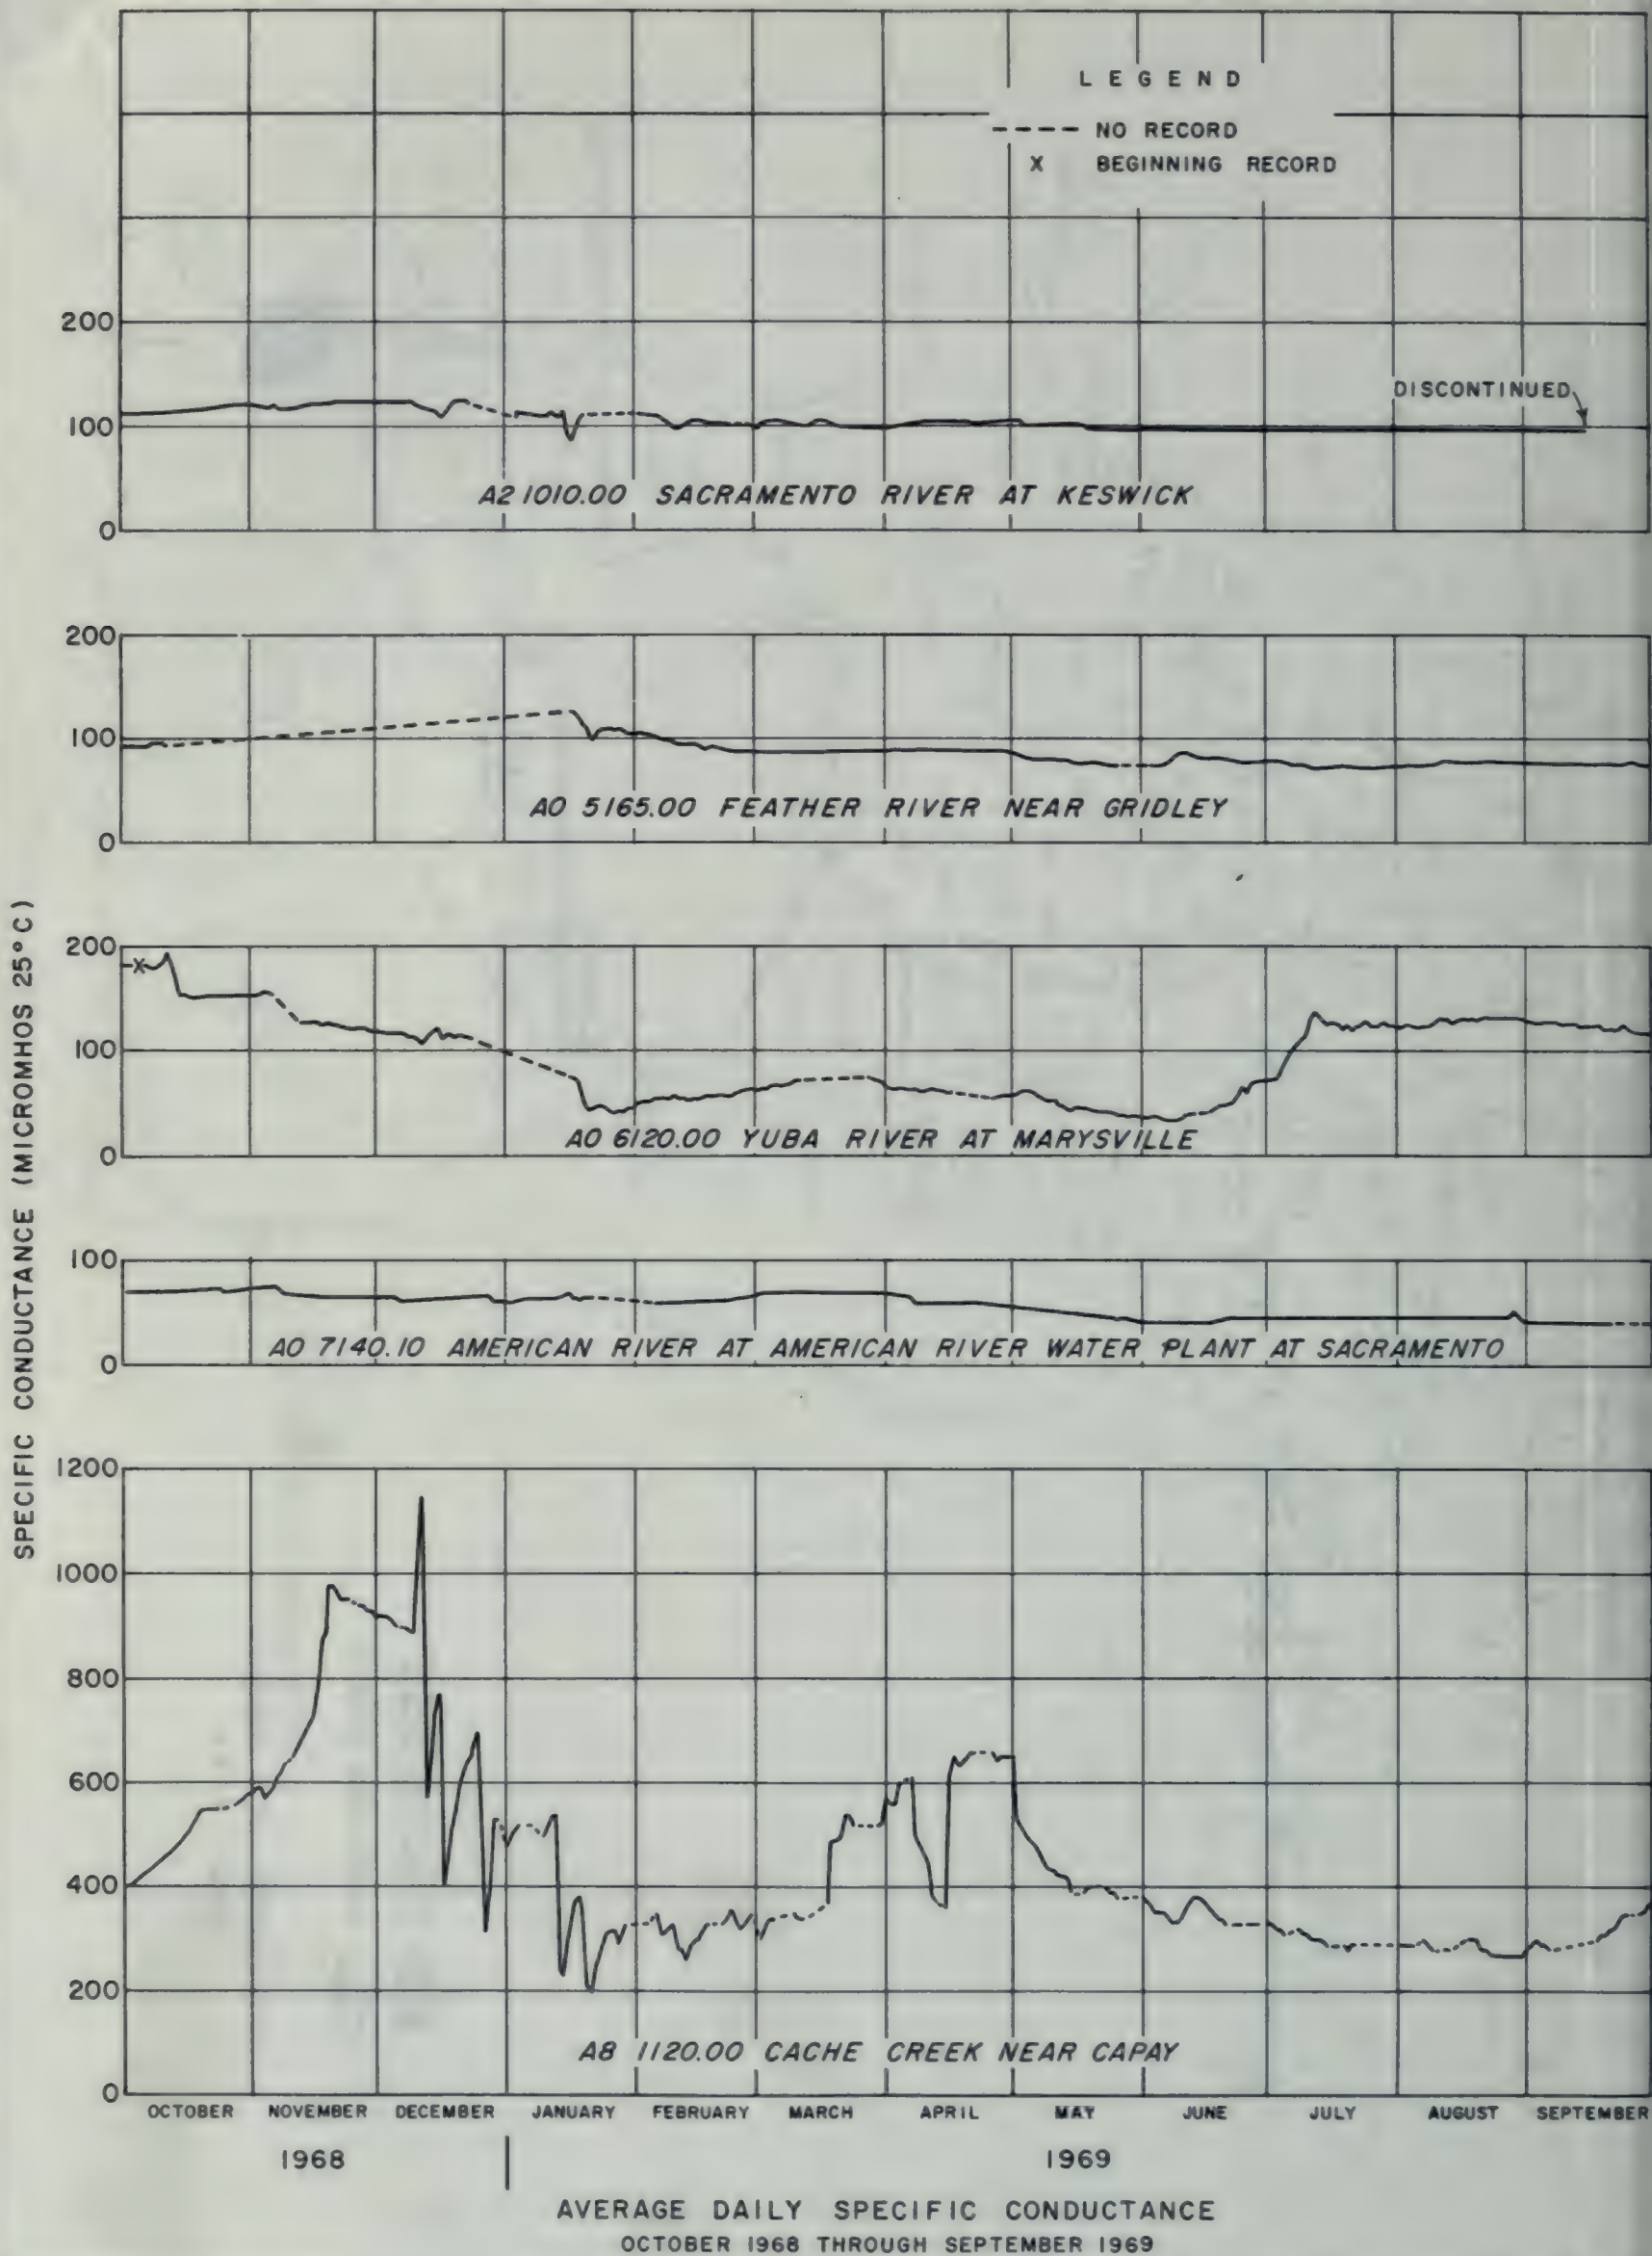 LEGEND
---- NO RECORD
X BEGINNING RECORD
200
100
0
DISCONTINUED
A2 1010.00 SACRAMENTO RIVER AT KESWICK
200
100
0
A0 5165.00 FEATHER RIVER NEAR GRIDLEY
SPECIFIC CONDUCTANCE (MICROMHOS 25°C)
200
100
0
X
A0 6120.00 YUBA RIVER AT MARYSVILLE
100
0
A0 7140.10 AMERICAN RIVER AT AMERICAN RIVER WATER PLANT AT SACRAMENTO
1200
1000
800
600
400
200
0
A8 1120.00 CACHE CREEK NEAR CAPAY
OCTOBER NOVEMBER DECEMBER JANUARY FEBRUARY MARCH APRIL MAY JUNE JULY AUGUST SEPTEMBER
1968 1969
AVERAGE DAILY SPECIFIC CONDUCTANCE
OCTOBER 1968 THROUGH SEPTEMBER 1969